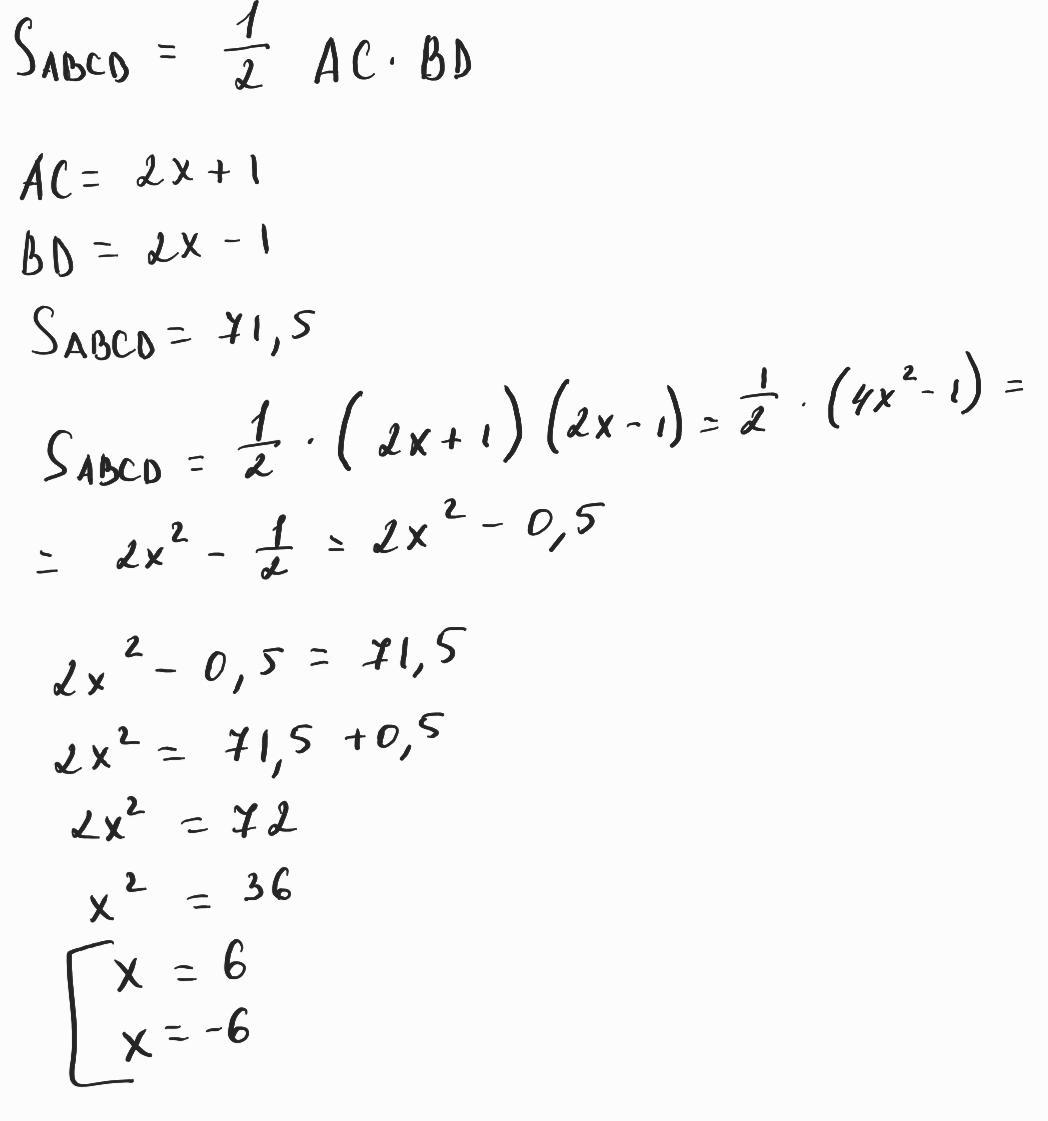 S_ABCD = 1/2 AC · BD
AC = 2x + 1
BD = 2x - 1
S_ABCD = 71,5
S_ABCD = 1/2 · (2x + 1)(2x - 1) = 1/2 · (4x² - 1) =
= 2x² - 1/2 = 2x² - 0,5
2x² - 0,5 = 71,5
2x² = 71,5 + 0,5
2x² = 72
x² = 36
[ x = 6
x = -6